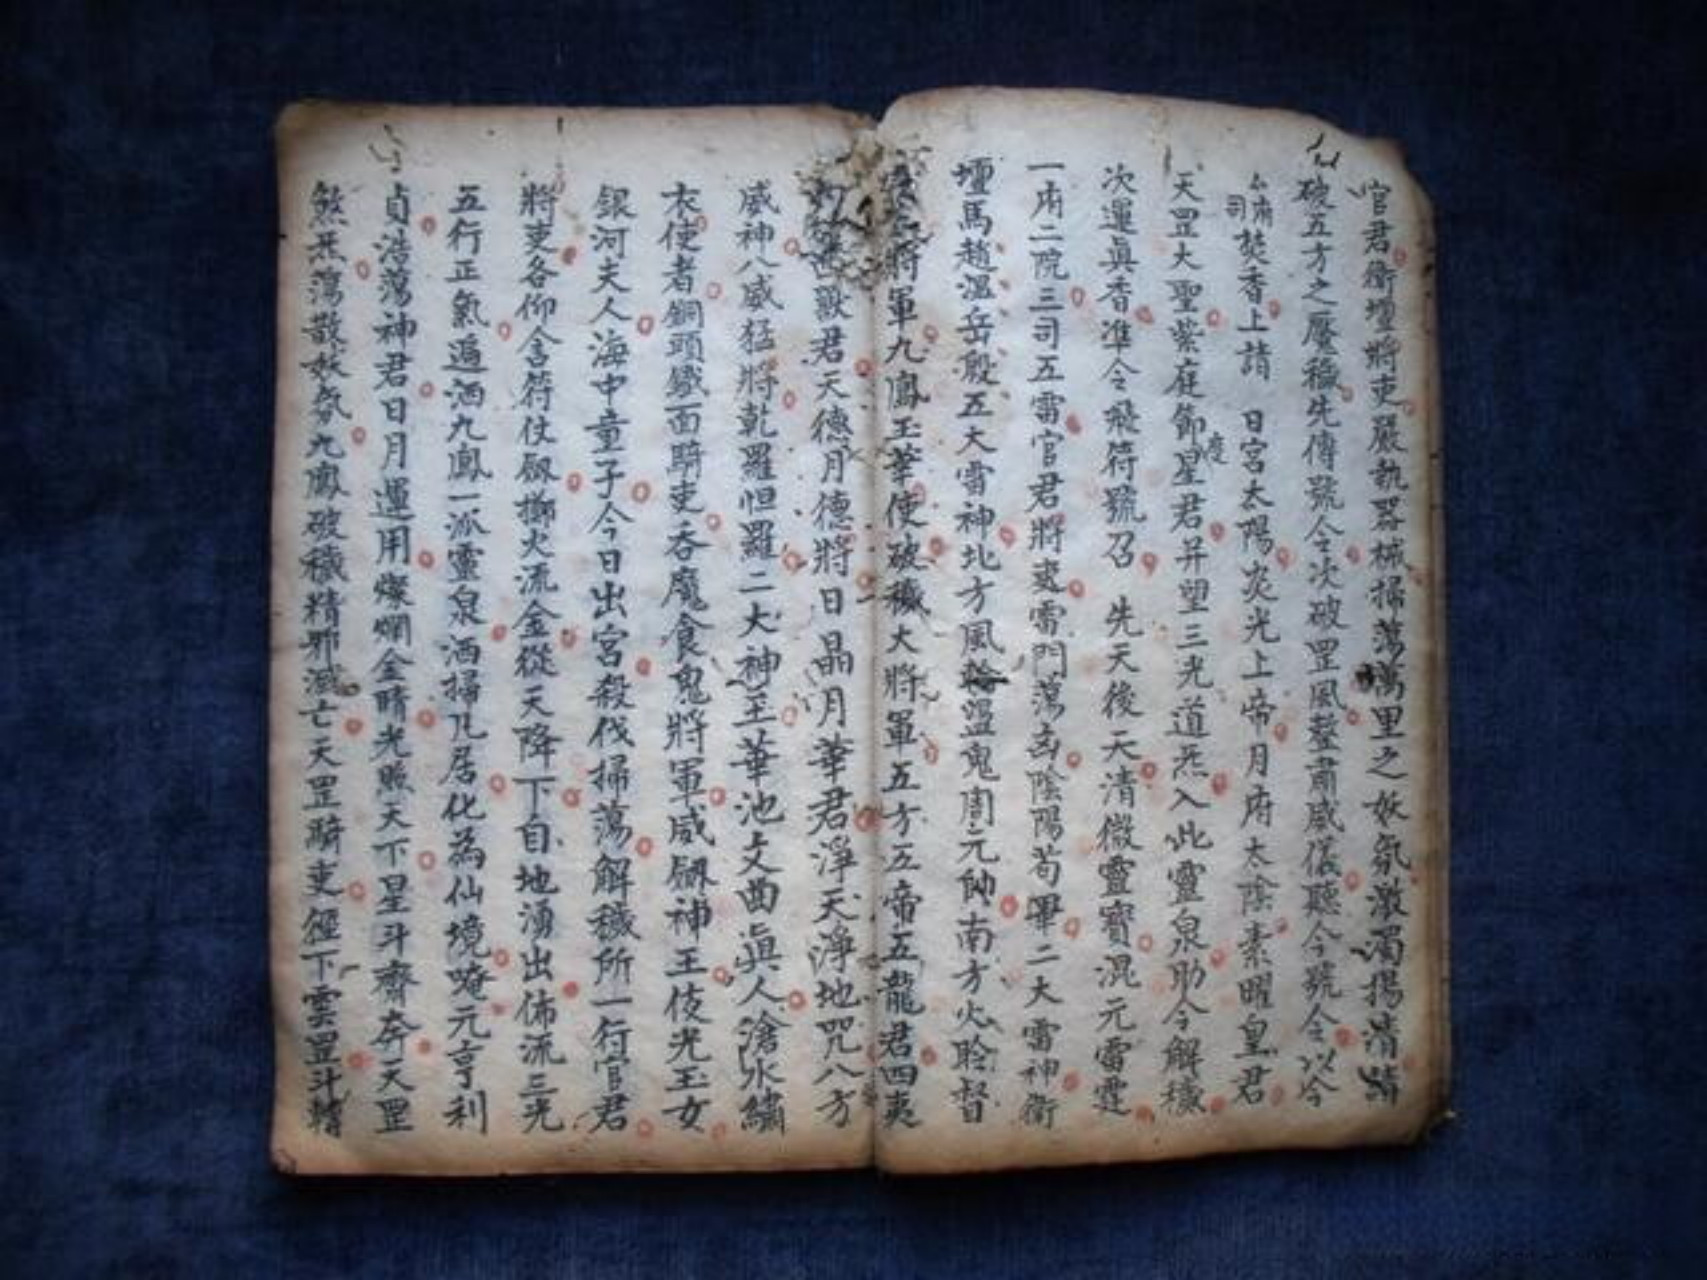 官君衛壇將吏嚴執器械掃蕩萬里之妖氛激濁揚清請
破五方之魘穢先傳號令次破罡風整肅威儀聽令號令以今
府司焚香上請 日宮太陽炎光上帝月府太陰素曜皇君
天罡大聖紫庭節度星君并望三光道炁入此靈泉助今解穢
次運眞香准令飛符號召 先天後天清微靈寶混元雷霆
一府二院三司五雷官君將吏雷門蕩凶陰陽苟畢二大雷神衛
壇馬趙溫岳殷五大雷神北方風輪溫鬼周元帥南方火聆督
將軍九鳳玉華使破穢大將軍五方五帝五龍君四夷
獸君天德月德將日晶月華君淨天淨地咒八方
威神八威猛將乾羅怛羅二大神王華池丈曲眞人滄水繡
衣使者銅頭鐵面騎吏吞魔食鬼將軍威劔神王伎光玉女
銀河夫人海中童子今日出宮殺伐掃蕩解穢所一行官君
將吏各仰含符仗劔擲火流金從天降下自地湧出佈流三光
五行正氣遍洒九鳳一派靈泉洒掃凡居化為仙境唵元亨利
貞浩蕩神君日月運用燦爛金睛光照天下星斗齊奔天罡
煞炁蕩散妖氛九鳳破穢精邪滅亡天罡騎吏徑下雲罡斗精